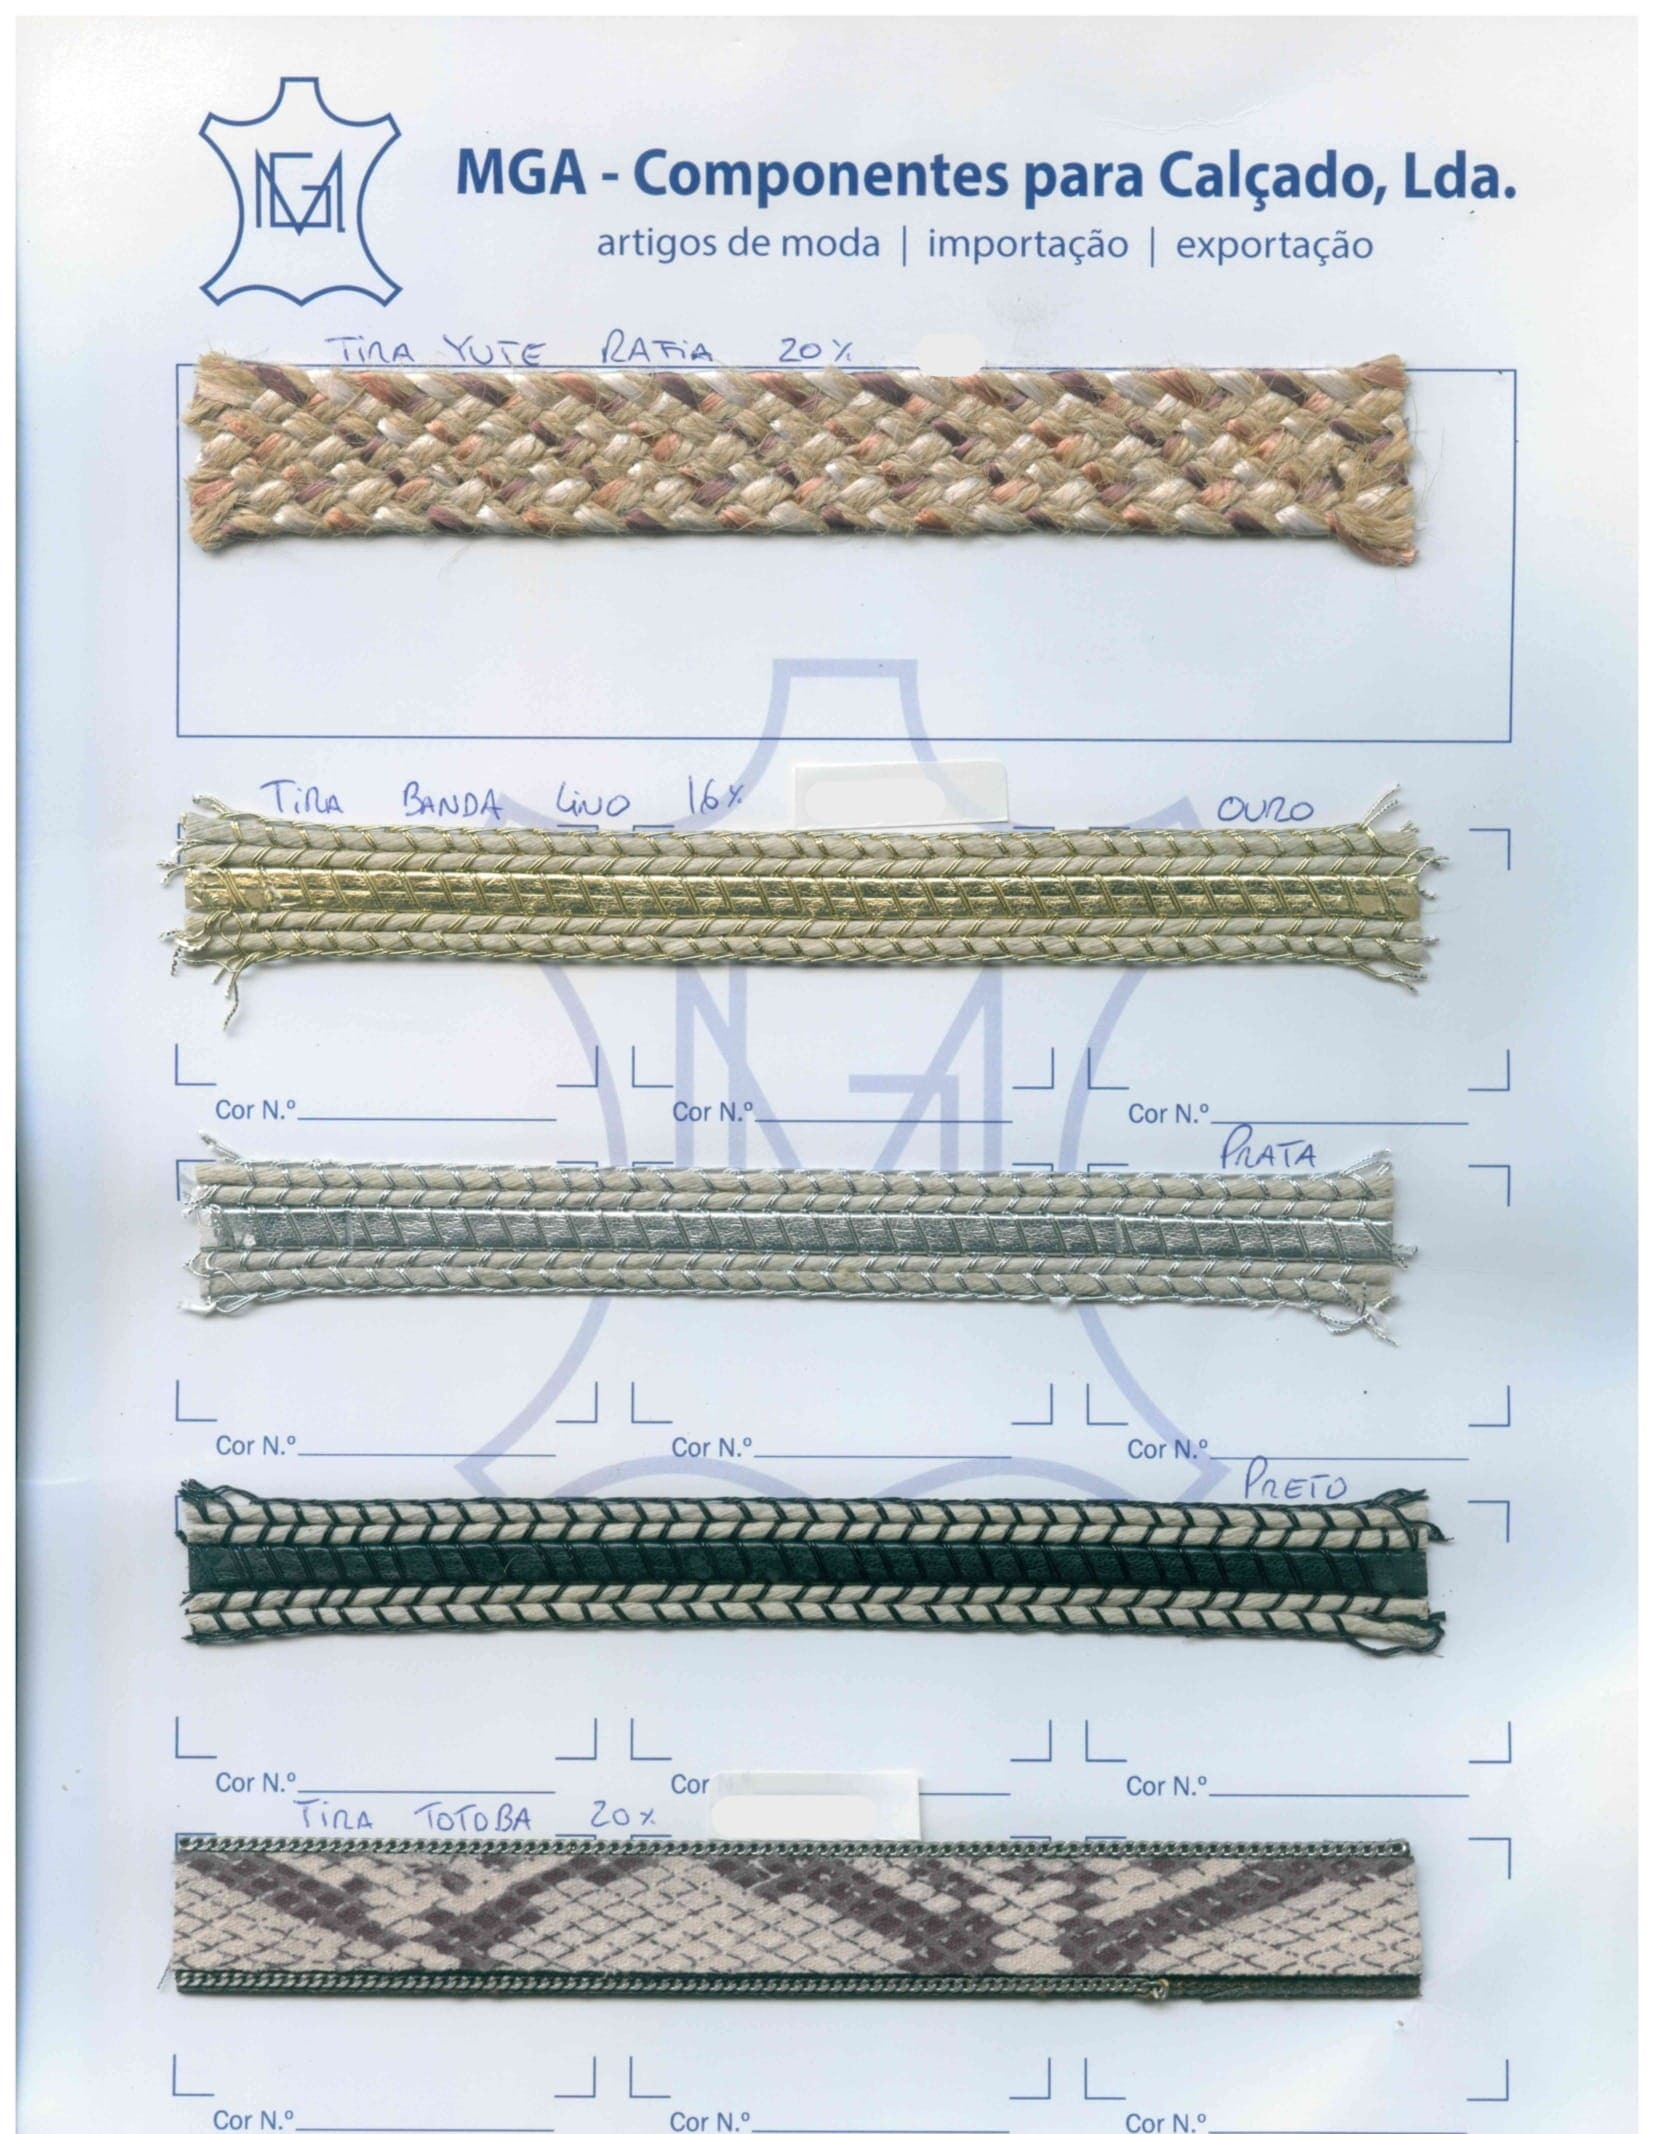 MGA
MGA - Componentes para Calçado, Lda.
artigos de moda | importação | exportação
TIRA YUTE RAFIA 20%
TIRA BANDA LINO 16% OURO
MGA
Cor N.º Cor N.º Cor N.º
PRATA
Cor N.º Cor N.º Cor N.º
PRETO
Cor N.º Cor Cor N.º
TIRA TOTOBA 20%
Cor N.º Cor N.º Cor N.º